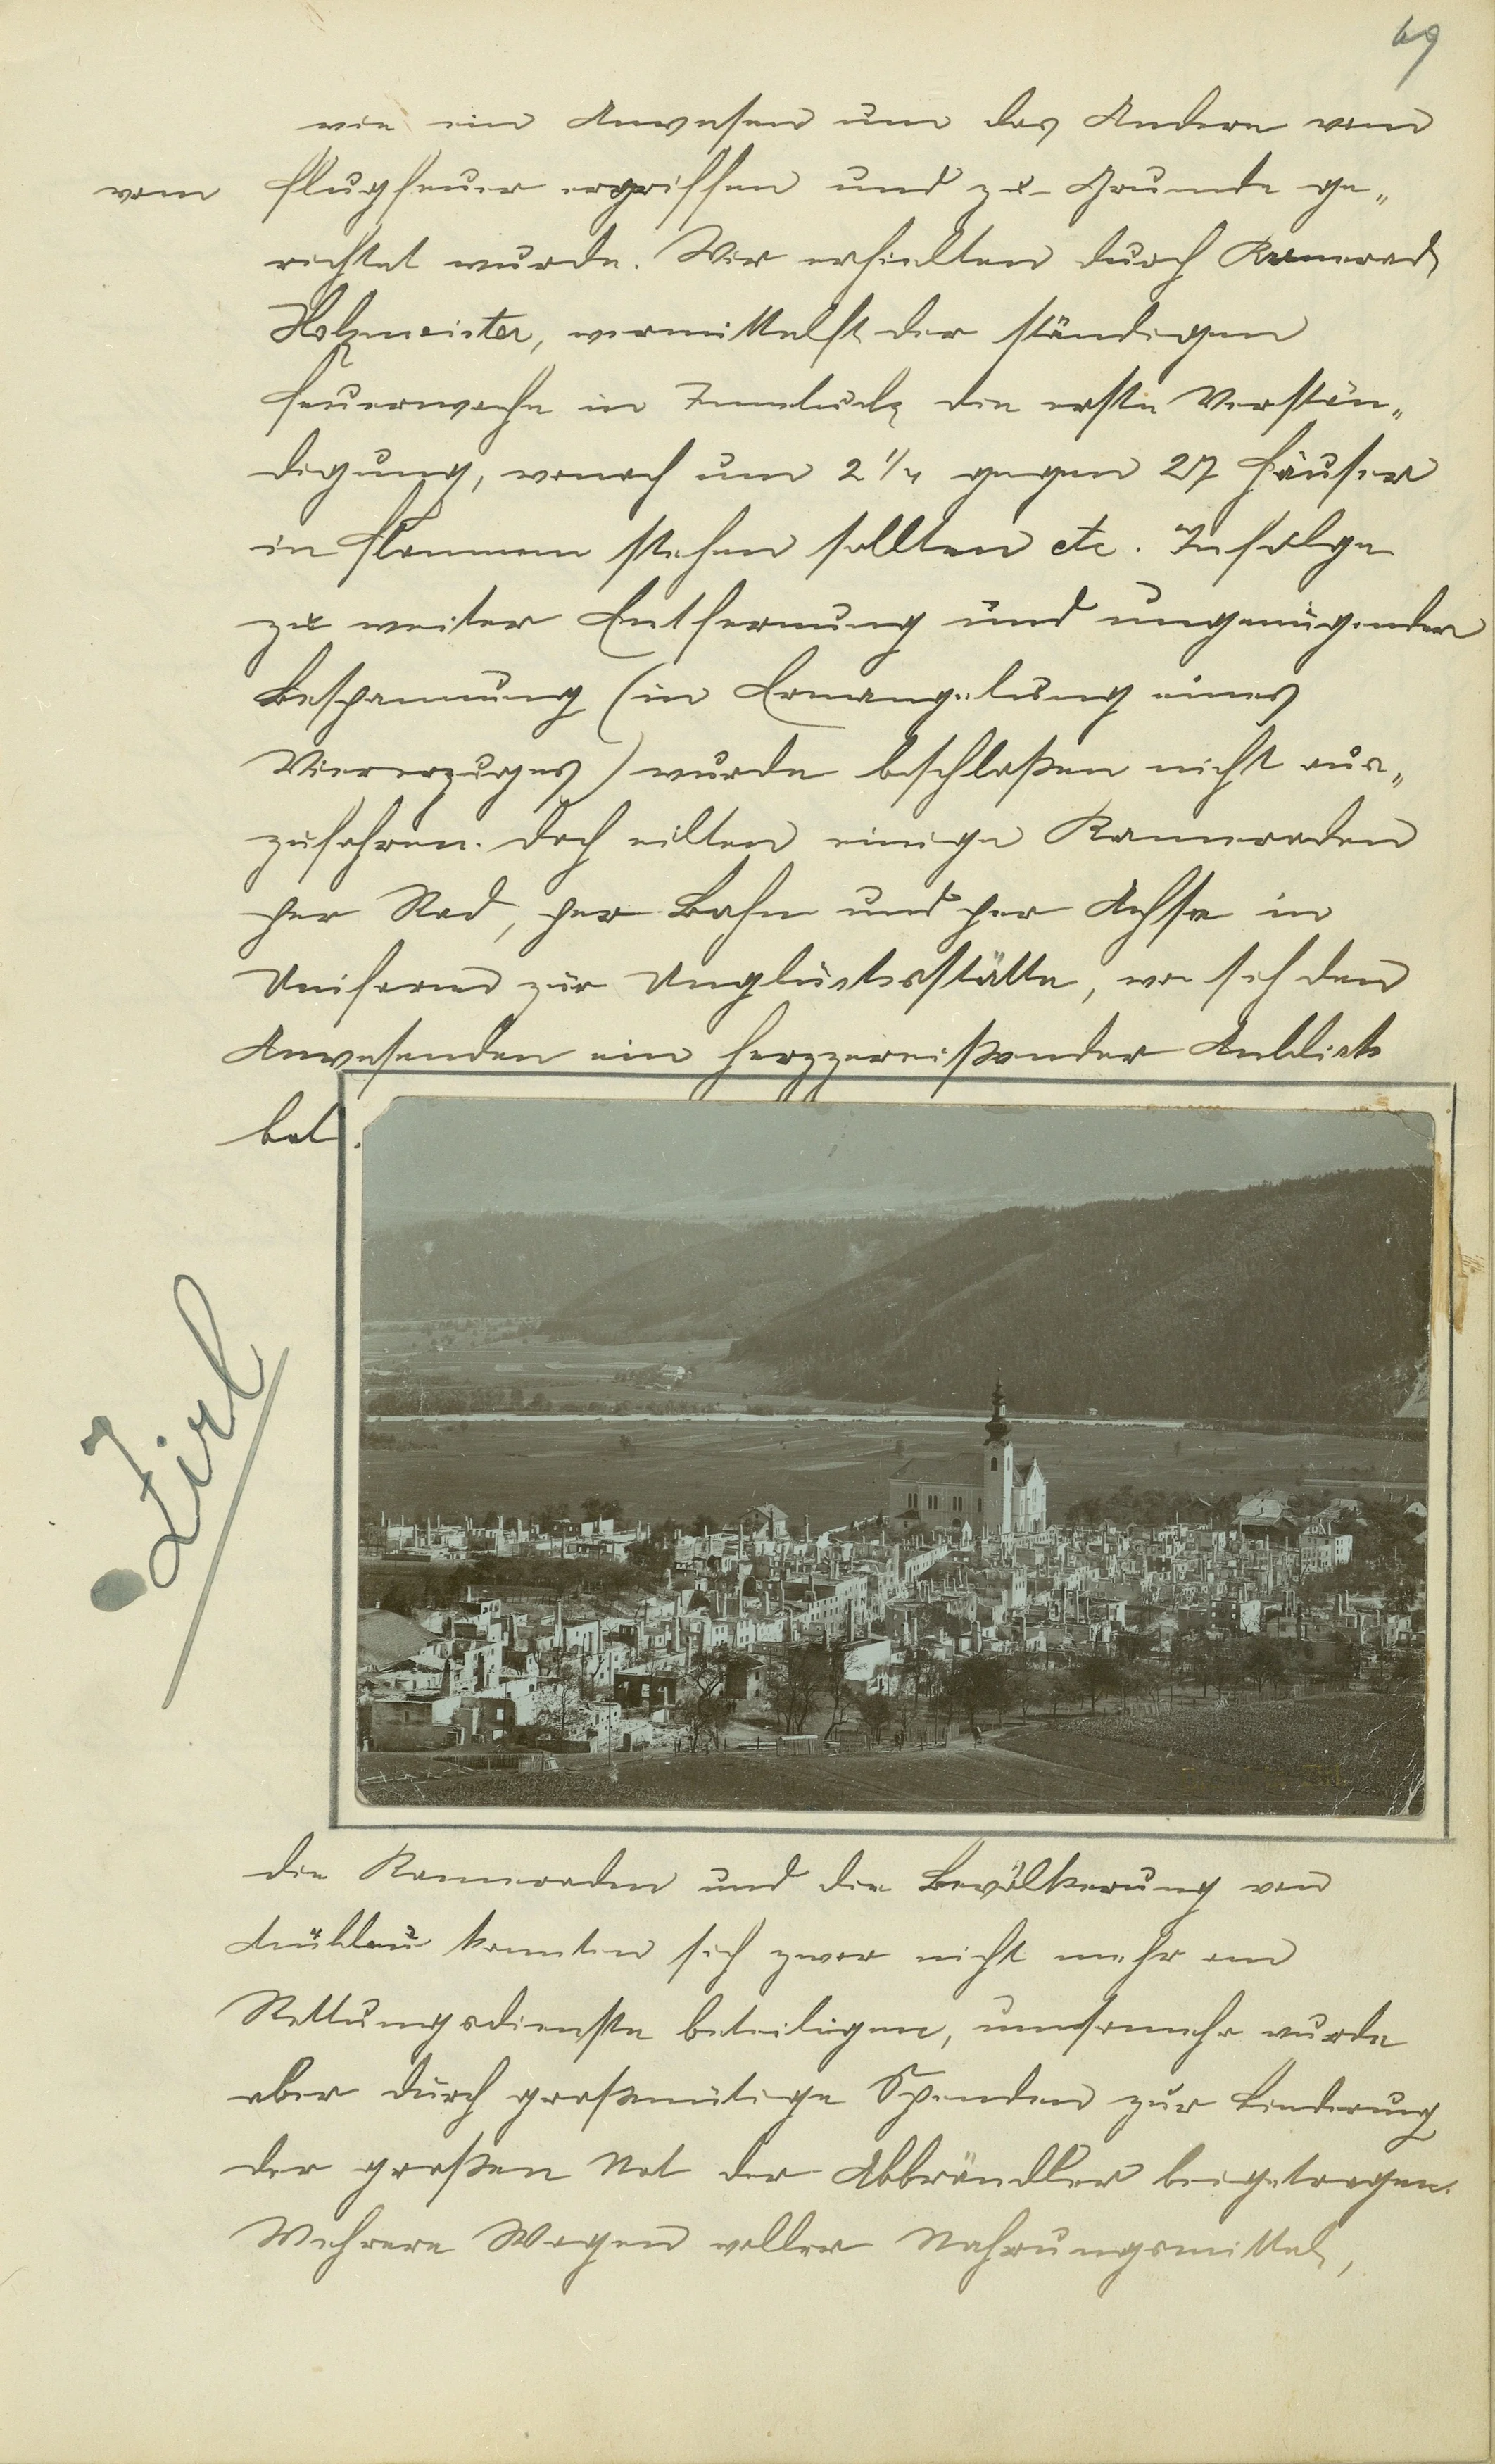 69
wie ein Anwesen um das Andere vom
vom Flugfeuer ergriffen und zu Grunde ge„
richtet wurde. Wir erhielten durch Kamerad
Holzmeister, vermittelst der ständigen
Feuerwache in Innsbruck die erste Verstän„
digung, wonach um 2 1/4 gegen 27 Häuser
in Flammen stehen sollten etc. Infolge
zu weiter Entfernung und ungenügender
Bespannung (in Ermangelung eines
Viererzuges) wurde beschloßen nicht aus„
zufahren. Doch eilten einige Kammeraden
per Rad, per Bahn und per Achse in
Uniform zur Unglücksstätte, wo sich den
Anwesenden ein herzzereißender Anblick
bot.
Zirl
Die Kammeraden und die Bevölkerung von
Mühlau konnten sich zwar nicht mehr am
Rettungsdienste beteiligen, umsomehr wurde
aber durch großmütige Spenden zur Linderung
der großen Not der Abbrändler beigetragen.
Mehrere Wagen voller Nahrungsmittel,